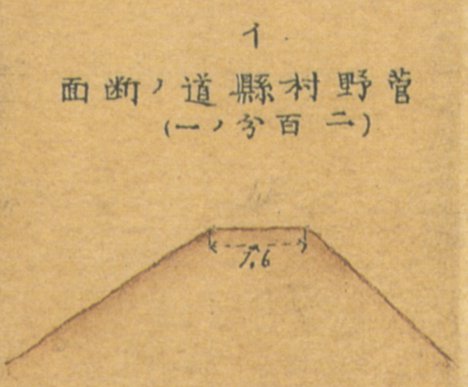 イ.
菅野村縣道ノ断面
(二百分ノ一)
7.6